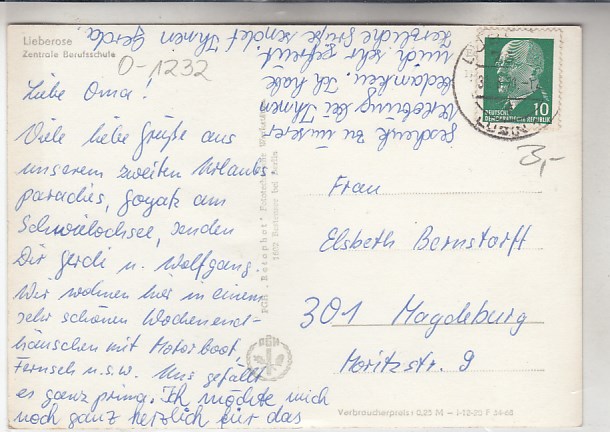 Lieberose
Zentrale Berufsschule
O-1232
Liebe Oma!
Viele liebe Grüße aus
unserem zweiten Urlaubs
paradies, Goyatz am
Schwielochsee, senden
Dir Gerdi u. Wolfgang.
Wir wohnen hier in einem
sehr schönen Wochenend-
häuschen mit Motorboot,
Fernseh u.s.w. Uns gefällt
es ganz prima. Ich möchte mich
noch ganz herzlich für das
Geschenk zu unserer
Verlobung bei Ihnen
bedanken. Ich habe
mich sehr gefreut.
Herzliche Grüße sendet Ihnen Gerda.
PGH „Rotophot" Bestensee
1602 Bestensee bei Berlin
PGH
10
DEUTSCHE
DEMOKRATISCHE REPUBLIK
3,-
Frau
Elsbeth Bernstorff
301 Magdeburg
Moritzstr. 9
Verbraucherpreis: 0,25 M